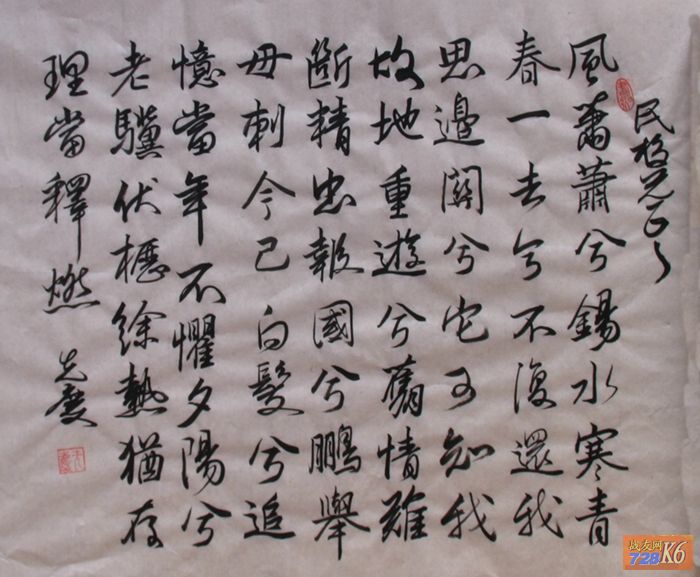 民兄正之
風蕭蕭兮錫水寒青
春一去兮不復還我
思邊關兮它可知我
故地重遊兮舊情難
斷精忠報國兮鵬舉
母刺今已白髮兮追
憶當年不懼夕陽兮
老驥伏櫪餘熱猶存
理當釋燃
慶
战友网 K6
728